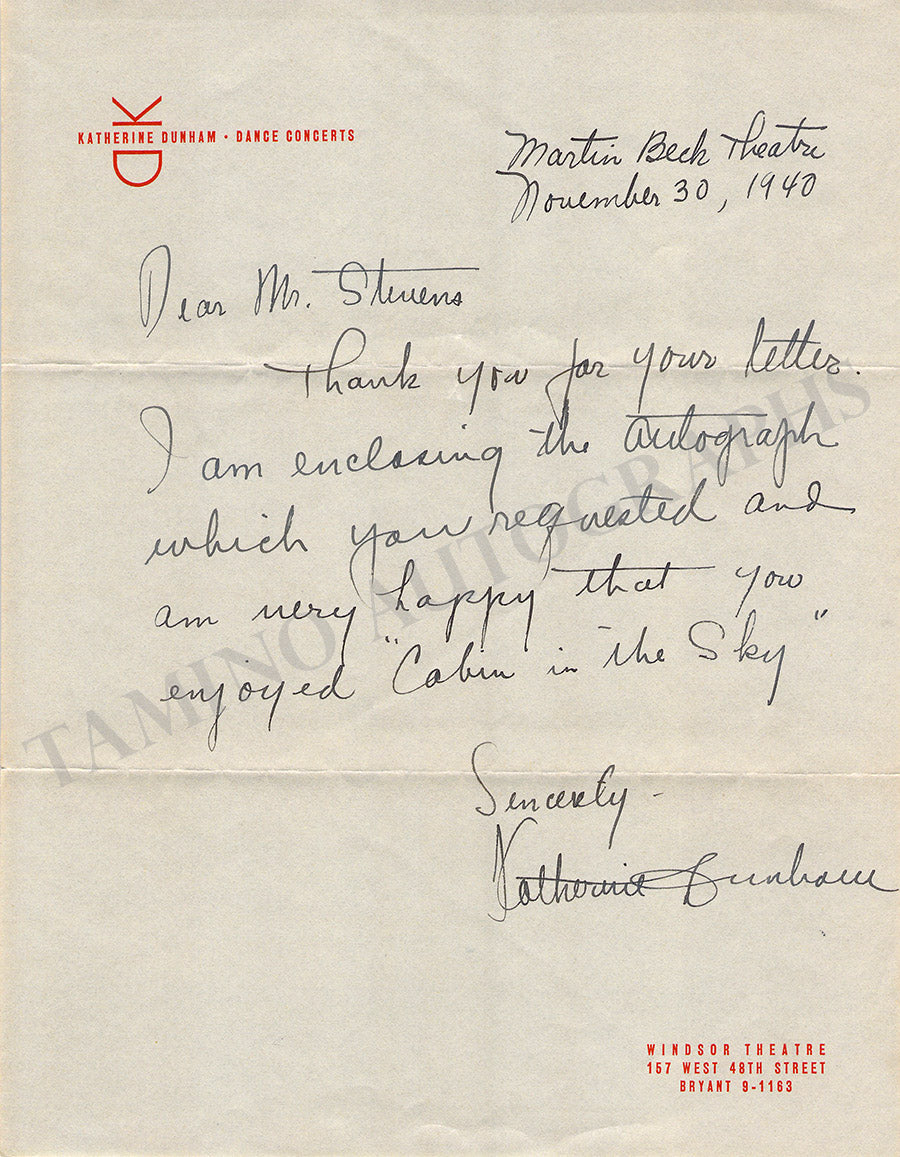 KD
KATHERINE DUNHAM • DANCE CONCERTS
Martin Beck Theatre
November 30, 1940
Dear Mr. Stevens
Thank you for your letter.
I am enclosing the autograph
which you requested and
am very happy that you
enjoyed "Cabin in the Sky"
Sincerely -
Katherine Dunham
WINDSOR THEATRE
157 WEST 48TH STREET
BRYANT 9-1163
TAMINO AUTOGRAPHS